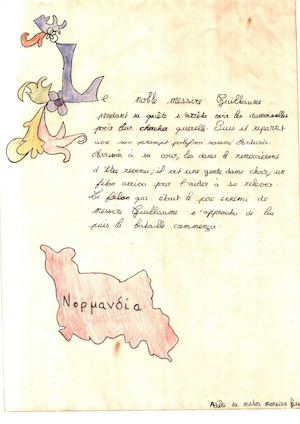 Le noble messire Guillaume
pendant sa quête s'arrêta voir les damoiselles
pour leur chercher querelle. Puis il repartit
avec son
Arrivé à sa cour, les dames le remercièrent
d'être revenu, il vit une gente dame choir, un
félon arriva pour l'aider à se relever.
Le félon qui était le pire ennemi de
messire Guillaume s'approcha de lui
puis la bataille commença.
Νορμανδία
de matos moreira